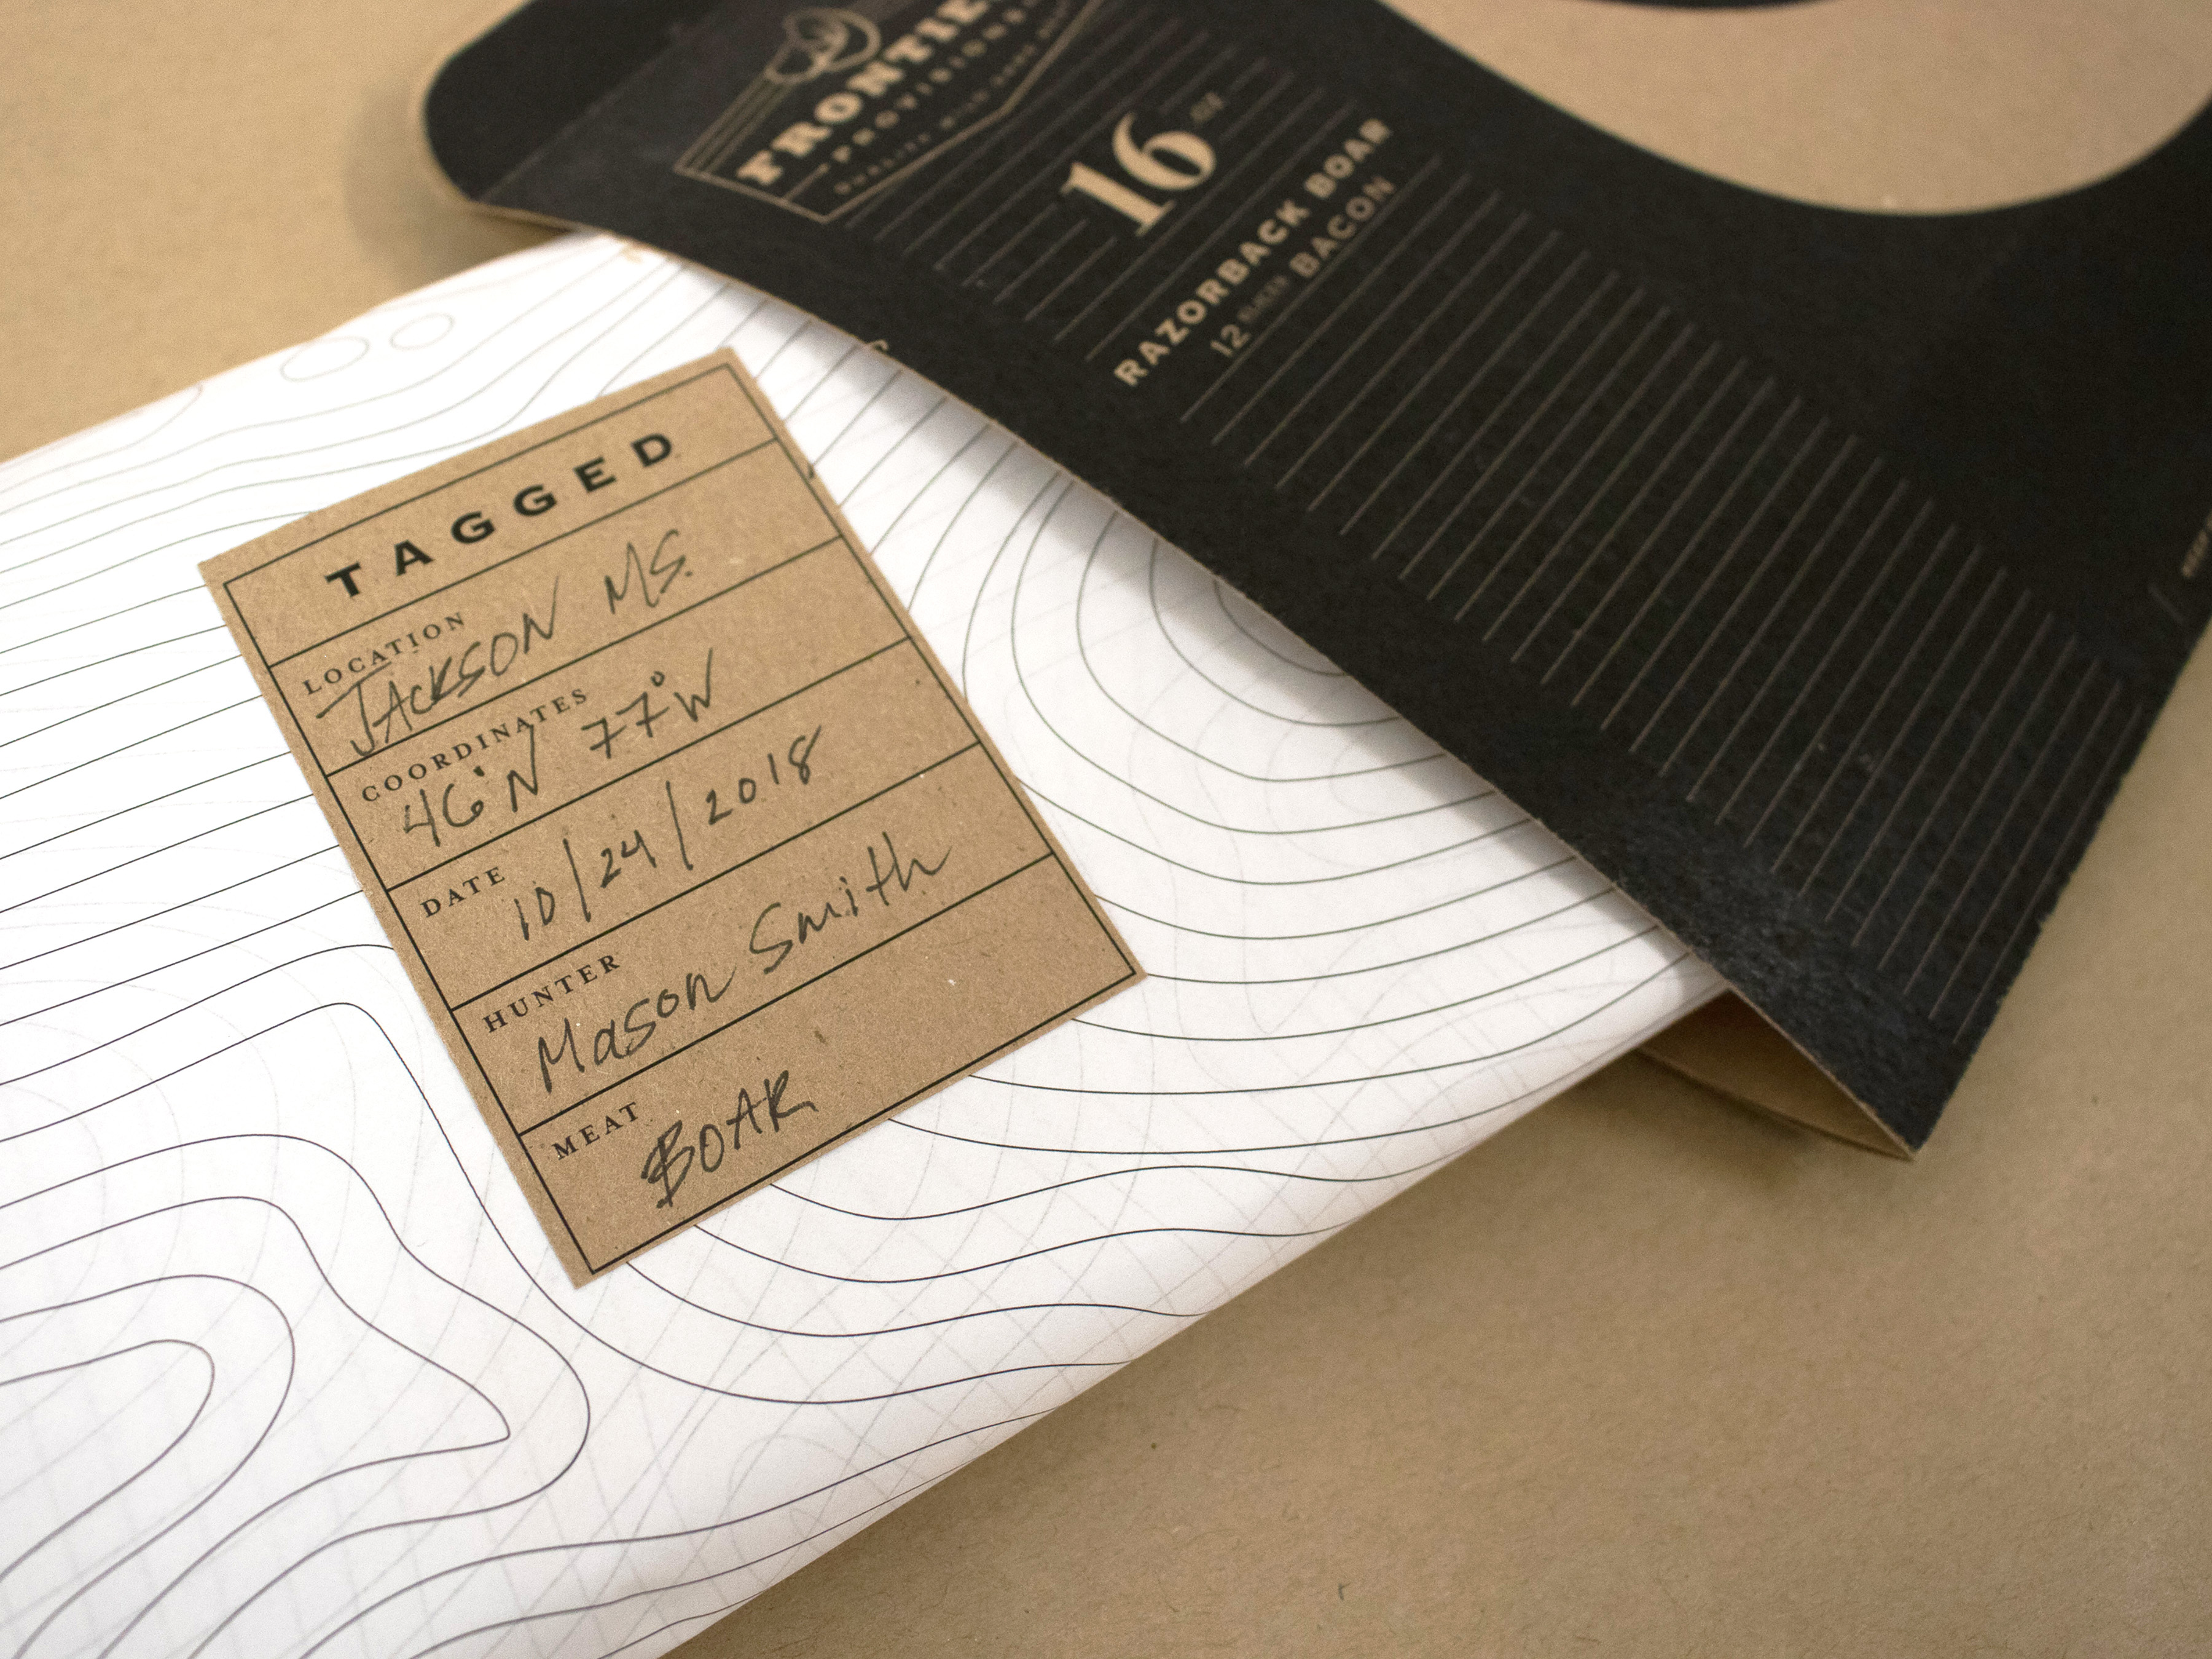 FRONTIER
PROVISIONS
16 OZ
RAZORBACK BOAR
12 SLICES BACON
TAGGED
LOCATION
JACKSON MS.
COORDINATES
46°N 77°W
DATE
10/24/2018
HUNTER
Mason Smith
MEAT
BOAR